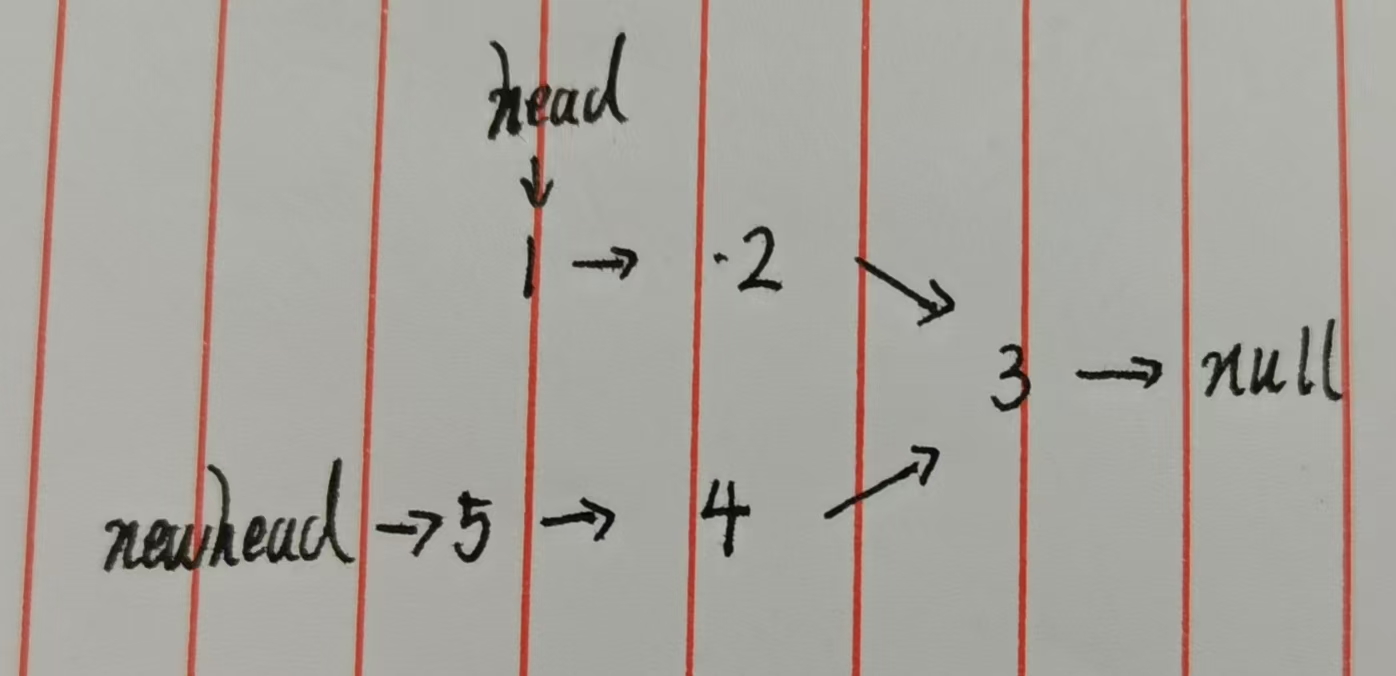 head
↓
1 → ·2
3 → null
newhead → 5 → 4